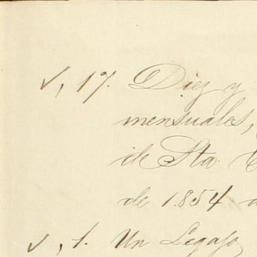 √, 17. Diez y
mensuales,
de Sta
de 1.854
√, 1. Un Legajo